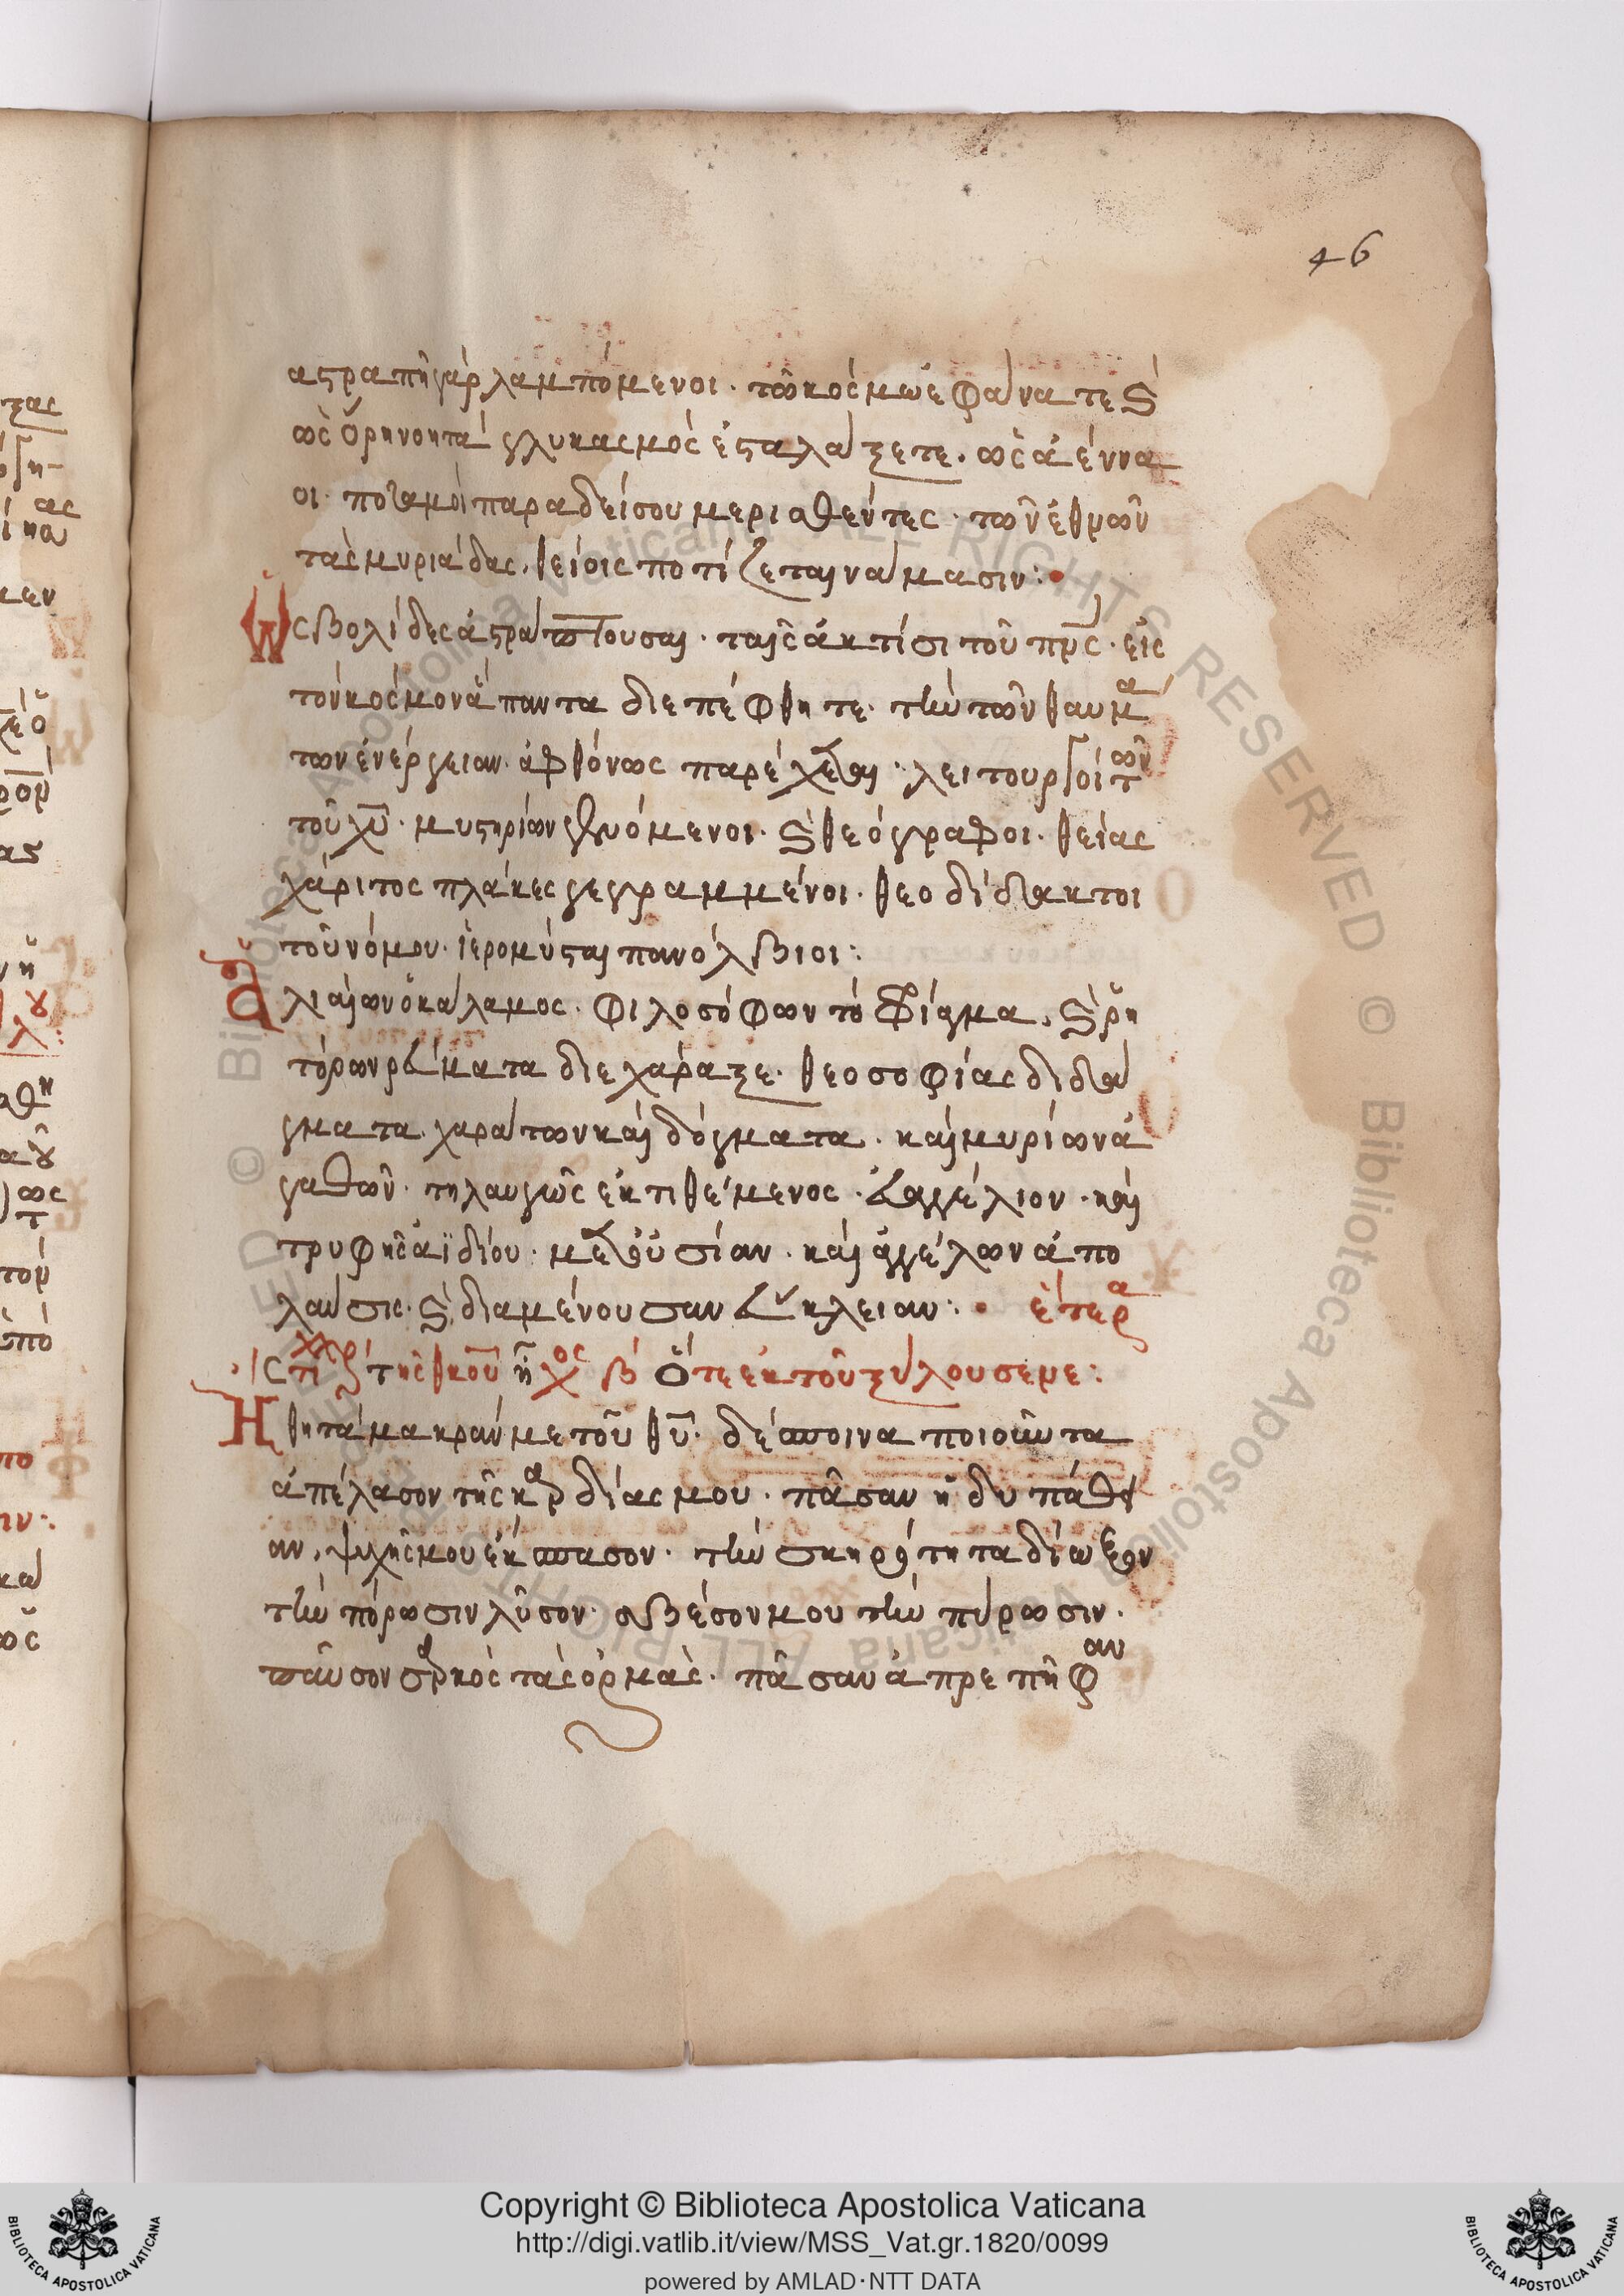 46
αστραπὴ γὰρ λαμπόμενοι· τῶ κόσμω ἐφάνατε καὶ
ὡς οὐρηνοητὰ γλυκασμὸς ἐσταλάξετε· ὡς ἀένναοι
οι· ποταμοὶ παραδείσου μερισθέντες· τῶν ἐθνῶν
τὰς μυριάδας, θείοις ποτίζεται νάμασιν:
Ως βολίδες ἀστράπτουσαι· ταῖς ἀκτίσι τοῦ πνς· εἰς
τὸν κόσμον ἅπαντα διεπέφθητε· τὴν τῶν θαυμά
των ἐνέργειαν· ἀφθόνως παρέχεσθαι· λειτουργοὶ τῶν
τοῦ χυ· μυστηρίων γενόμενοι· καὶ θεόγραφοι· θείας
χάριτος πλάκες γεγραμμένοι· θεοδίδακτοι
τοῦ νόμου· ἱερομύσται πανόλβιοι:
Ἁλιαίων ὁ κάλαμος· φιλοσόφων τὸ φρίαγμα, καὶ ῥη
τόρων ρεύματα διεχάραξε· θεοσοφίας διδά
γματα χαράτων καὶ δόγματα· καὶ μυρίων ἀ
γαθῶν· τηλαυγῶς ἐκτιθέμενος· εὐαγγέλιον· καὶ
τρυφῆς ἀϊδίου· μετουσίαν· καὶ ἀγγέλων ἀπο
λαύσις· καὶ διαμένουσαν εὔκλειαν: ἑτερα
τῆς θκου ἦχος β Ὅτε ἐκ τοῦ ξύλου σε με:
Ηθη τὰ μακράν με τοῦ θυ· δέσποινα ποιοῦντα
ἀπέλασον τῆς καρδίας μου· πᾶσαν ἡδυπάθει
αν, ψυχῆς μου ἐκσπασον· τὴν σκηρότητα δίωξον
τὴν πόρωσιν λῦσον· σβέσον μου τὴν πύρωσιν·
παῦσον σαρκὸς τὰς ὁρμὰς· πᾶσαν ἀπρεπῆ φαν
Copyright © Biblioteca Apostolica Vaticana
http://digi.vatlib.it/view/MSS_Vat.gr.1820/0099
powered by AMLAD·NTT DATA